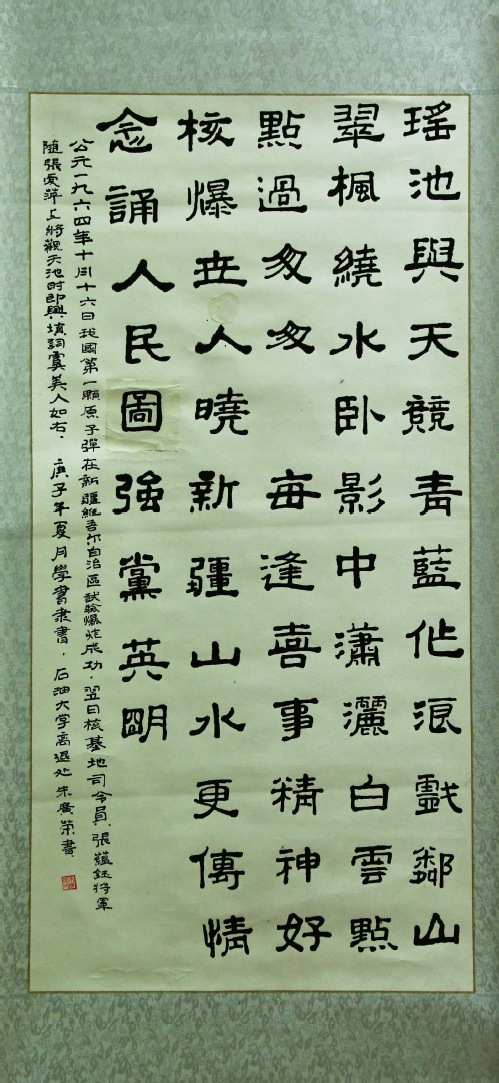 瑤池與天競青藍化浪戲鄰山
翠楓繞水卧影中瀟灑白雲點
點過匆匆 每逢喜事精神好
核爆世人曉新疆山水更傳情
念誦人民圖強黨英明
公元一九六四年十月十六日我國第一顆原子彈在新疆維吾尔自治區試驗爆炸成功．翌日核基地司令員張蘊鈺將軍
随張愛萍上將觀天池时即興填詞虞美人如右．庚子年夏月學書隶書．石油大学离退处朱廣榮書